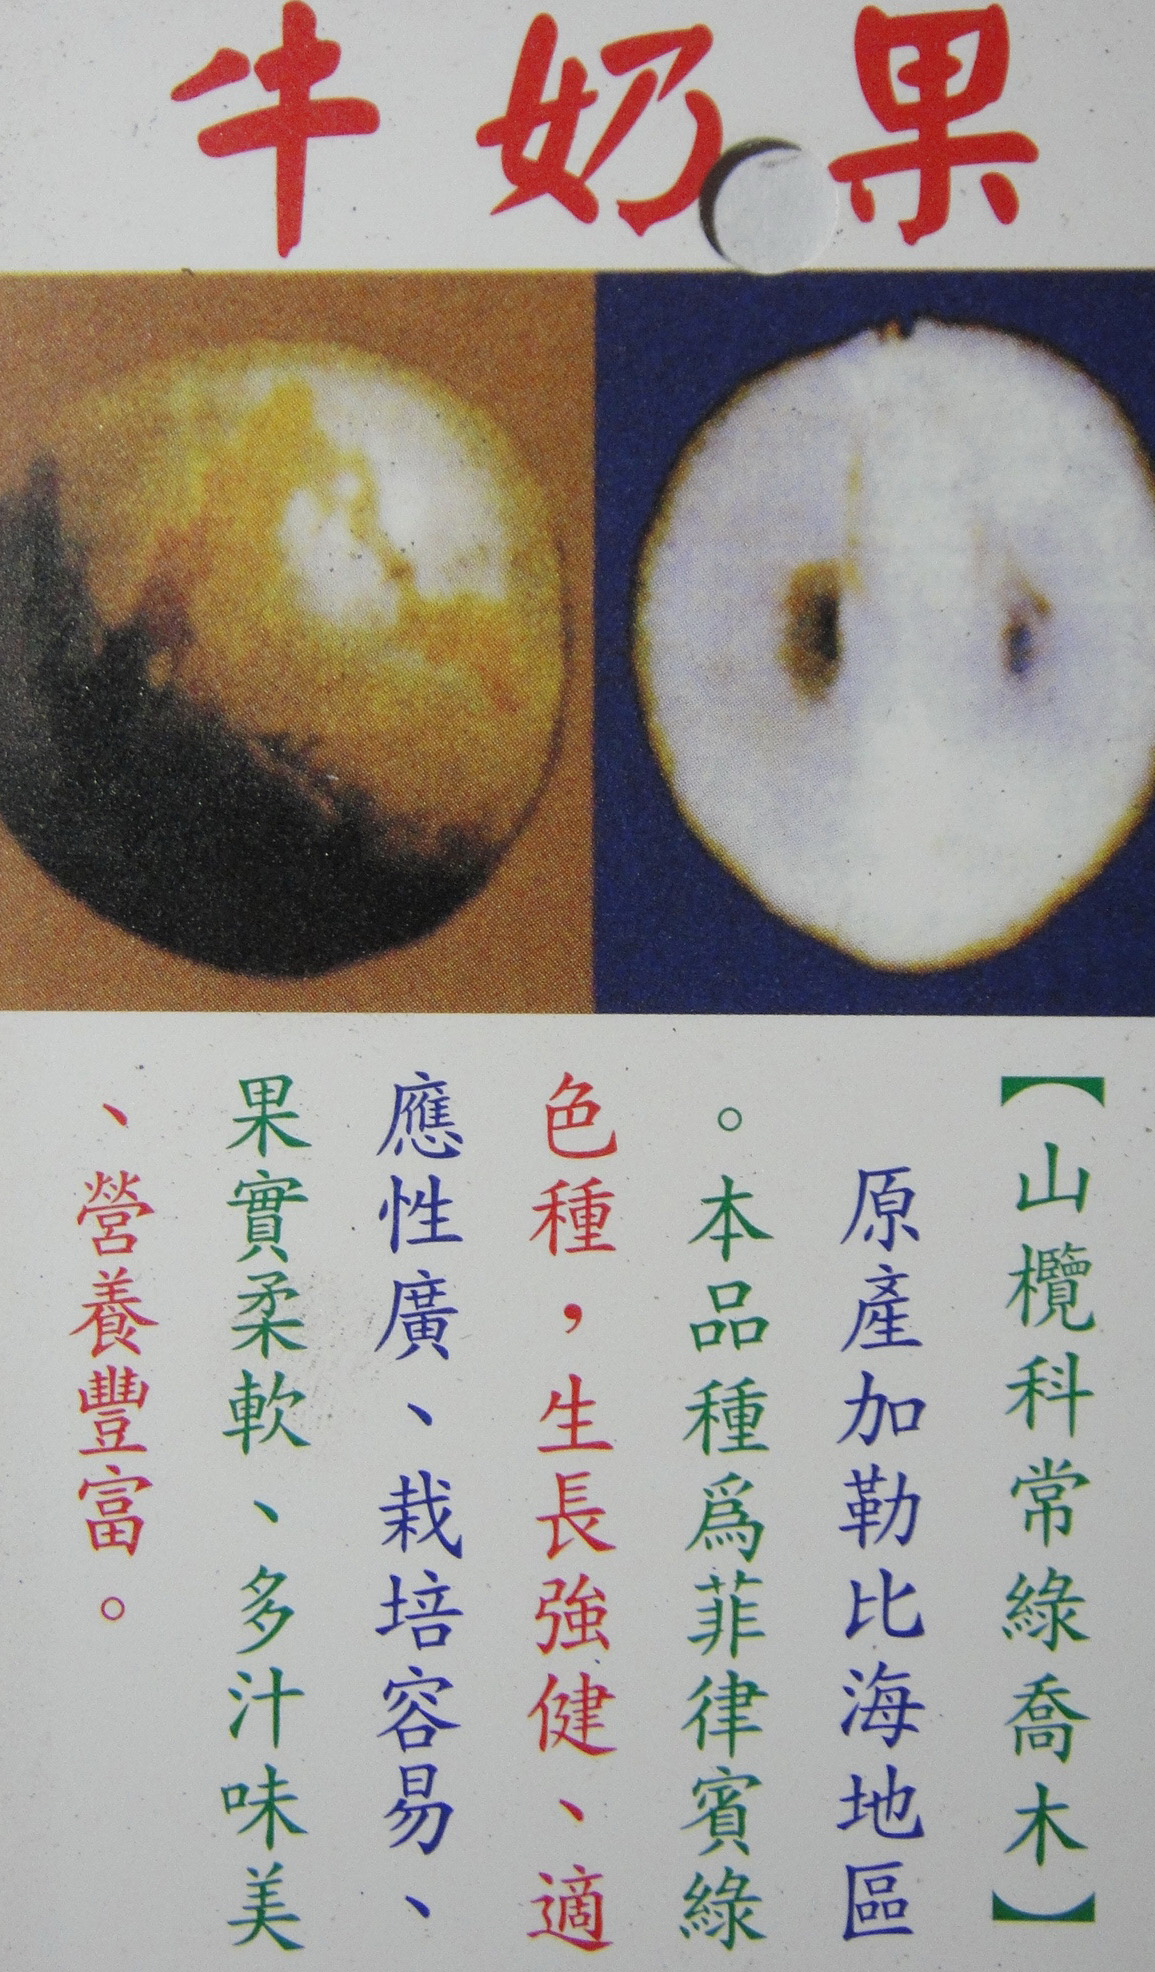 牛奶果
【山欖科常綠喬木】
原產加勒比海地區
。本品種爲菲律賓綠
色種，生長強健、適
應性廣、栽培容易、
果實柔軟、多汁味美
、營養豐富。